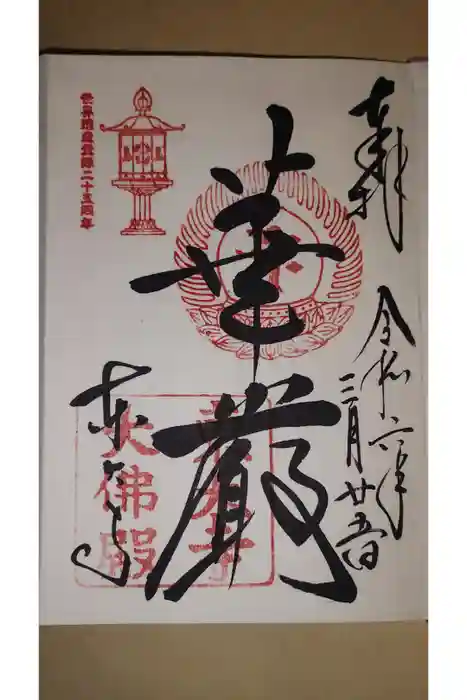 奉拝
令和六年
三月廿五日
華厳
東大寺
東大寺
大佛殿
世界遺産登録二十五周年